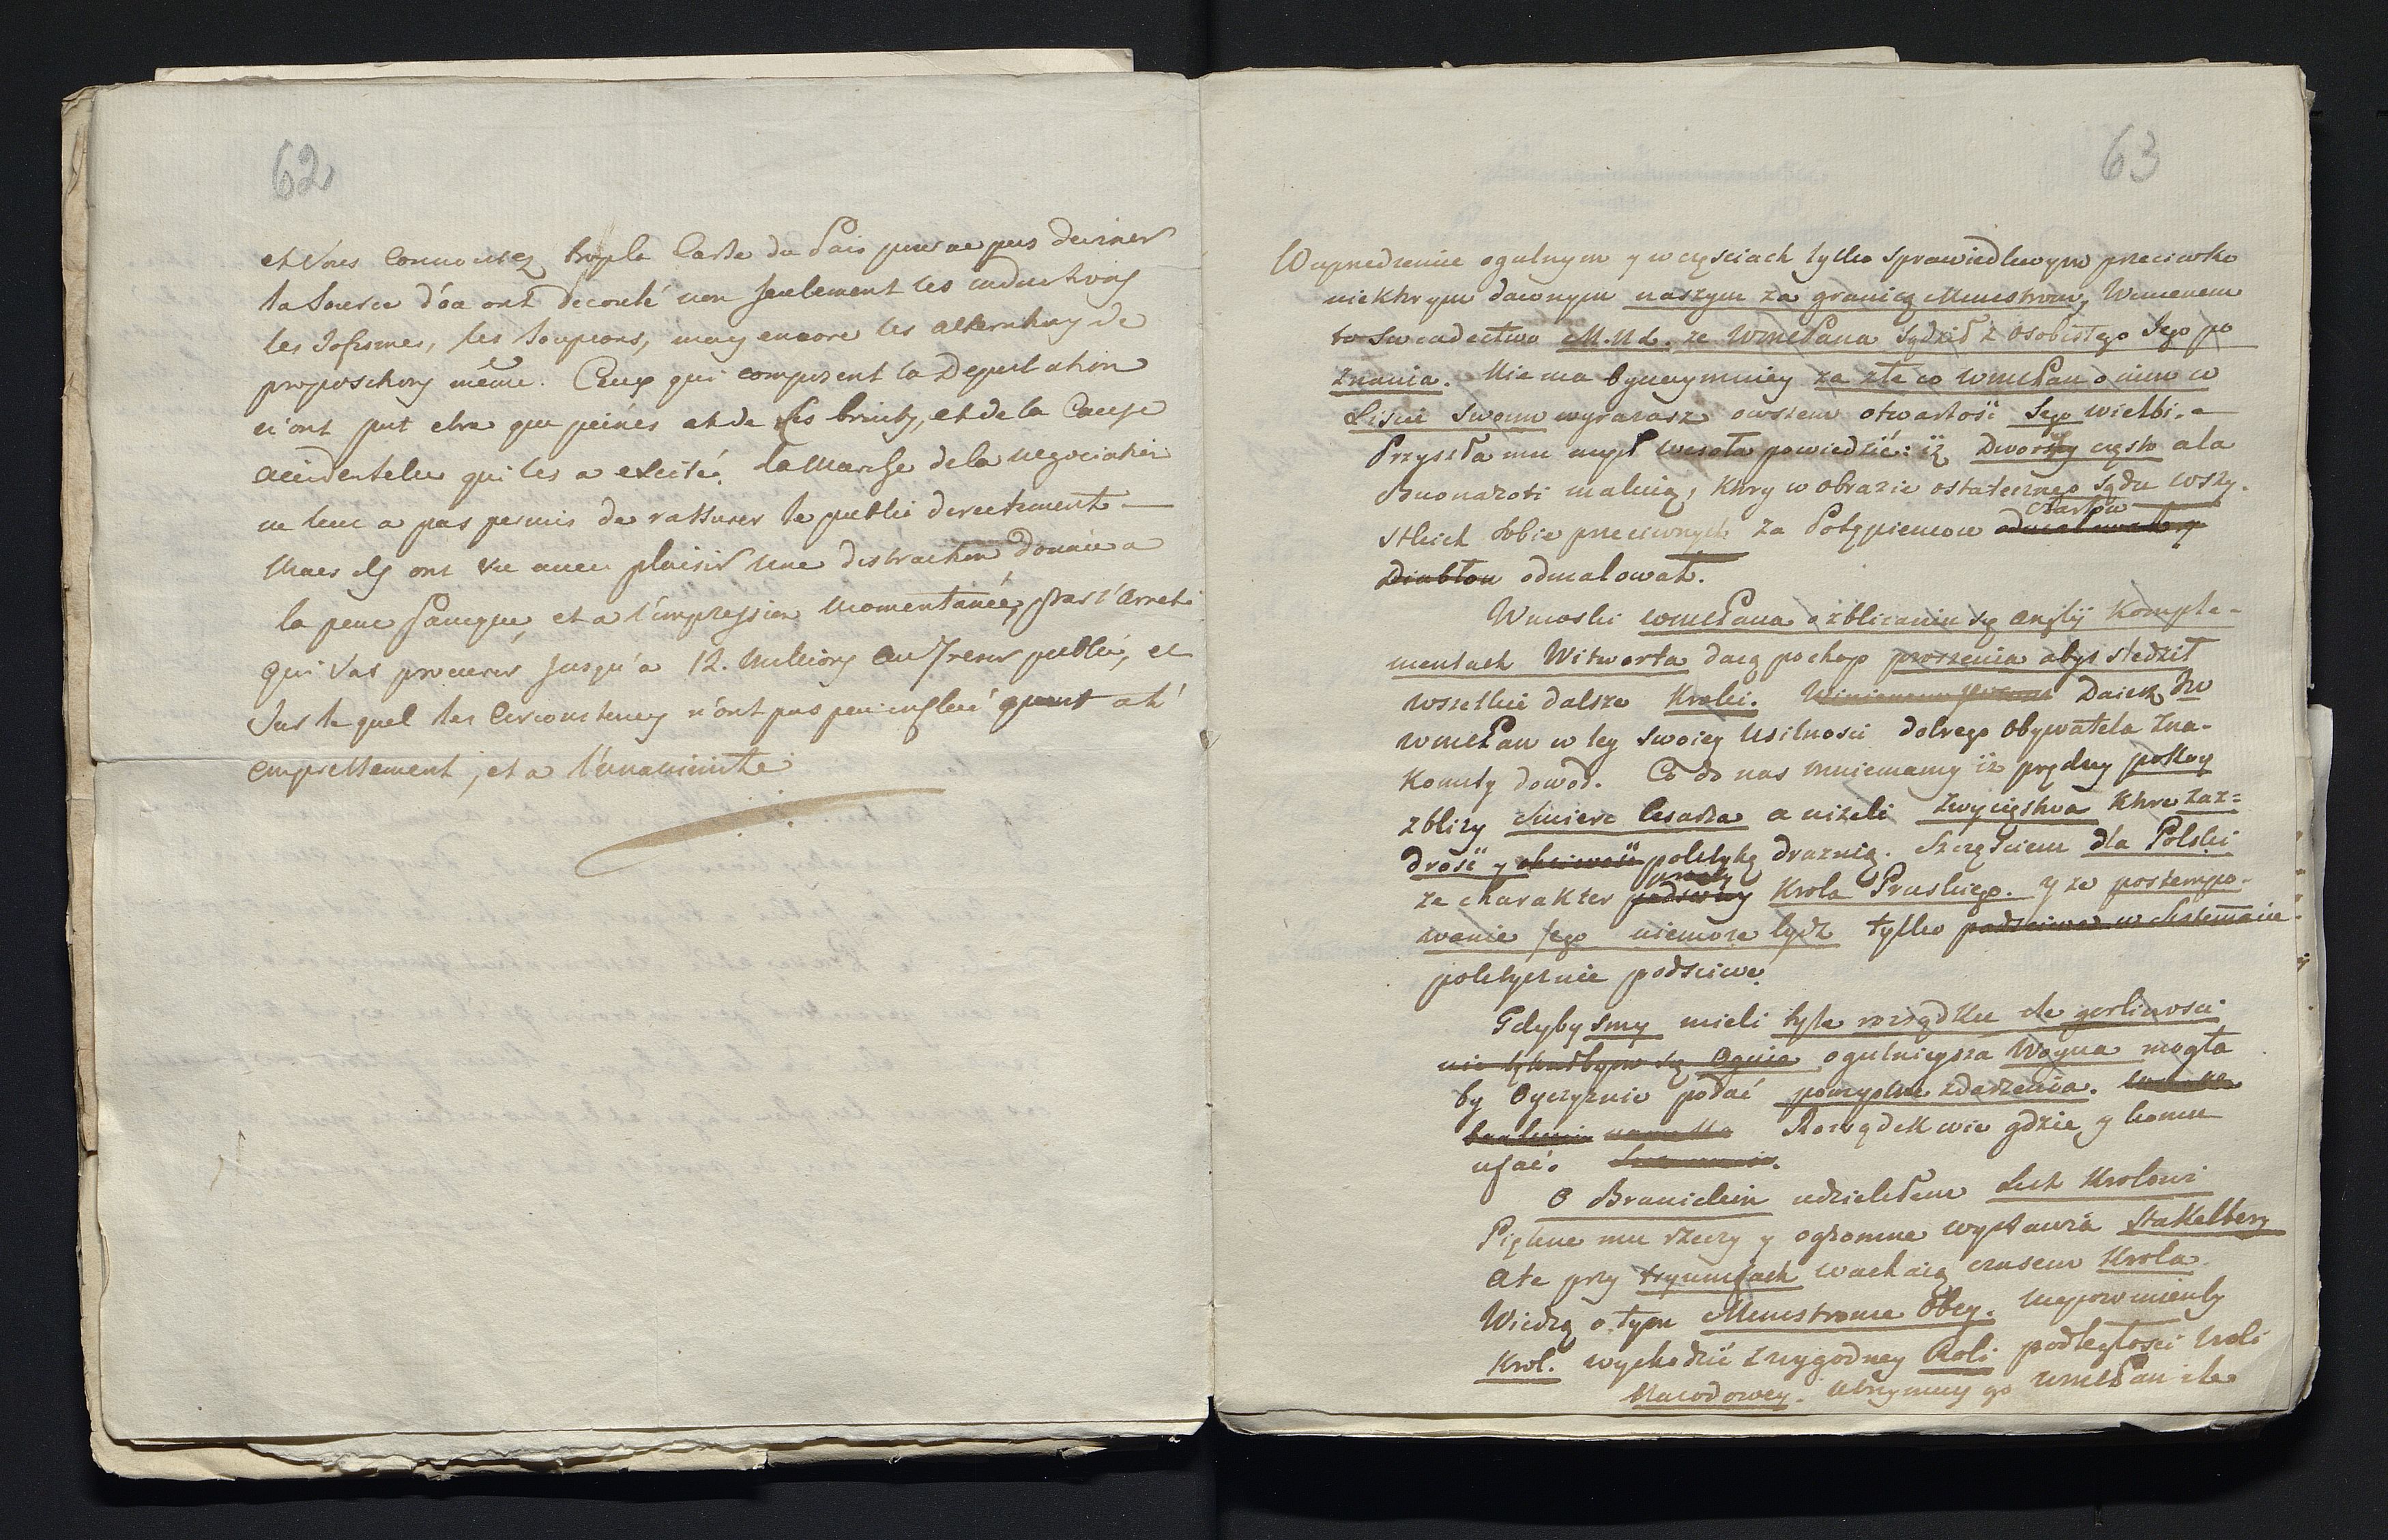 62
et Vous connoissez trop la Carte du Pais pour ne pas deviner
la Source d'où ont decoulé non seulement les inductions
les Sofismes, les Soupcons, mais encore les alternatives de
propositions même. Ceux qui composent la Deputation
n'ont put etre que peinés et de ses bruits, et de la Cause
accidentelle qui les a excité. La Marche de la negociation
ne leur a pas permis de rassurer le public directement —
Mais ils ont vu avec plaisir une distraction donnée a
la peur panique, et a l'impression Momentanée, par l'Arreté
qui Vas procurer jusqu'a 12. Millions au Tresor public, et
Sur le quel les Circonstances n'ont pas peu influé quant a l'
empressement, et a l'unanimité
63
Uprzedzenie ogulnym y w częściach tylko sprawiedliwym przeciwko
niektorym dawnym naszym za granicą Ministrom,
to Swiadectwo M. N. L. ze WmćPana Sądził z osobistego Jego po
znania. Nie ma bynaymniey za złe co WmćPan o nim w
Liscie Swoim wyrazasz owszem otwartość Jego wielbi.
Przyszła mu myśl wesoła powiedzić: iż Dworscy często ala
Buonaroti malują, ktory w obrazie ostatecznego Sądu wszy-
stkich Sobie przeciwnych za Potępiencow
Czartow
Diabłow odmalował.
Wnioski WmćPana o zbliżaniu się Anglij Komple-
mentach Witworta daią pochop proszenia abyś sledził
wszelkie dalsze Kroki. Daiesz
WmćPan w tey Swoiey Usilności dobrego Obywatela Zna-
komity dowod. Co do nas mniemamy iż prędzey pokoy
zbliży Smierć Cesarza a niżeli Zwycięstwa ktore zaz=
drość y politykę draznią. Szczęściem dla Polski
prawy
ze charakter Krola Pruskiego. y ze postempo-
wanie Jego niemoże bydź tylko podsciwe w Sistemacie
politycznie podsciwe.
Gdybysmy mieli tyle rozsądku ile gorliwosci
nie Ognie ogulnieysza Woyna mogła
by Oyczyznie podać pomyslne zdarzenia.
Rozsądek wie gdzie y komu
ufać.
O Branickim udzieliłem List Krolowi
Piękne mu rzeczy y ogromne wystawia Stakelberg
Ale przy tryumfach wachaią czasem Krola.
Wiedzą o tym Ministrowie Obcy. Niepowinienby
Krol. wychodzić z wygodney Roli podległości Woli
Narodowey. Utrzymuy go WmćPan ile